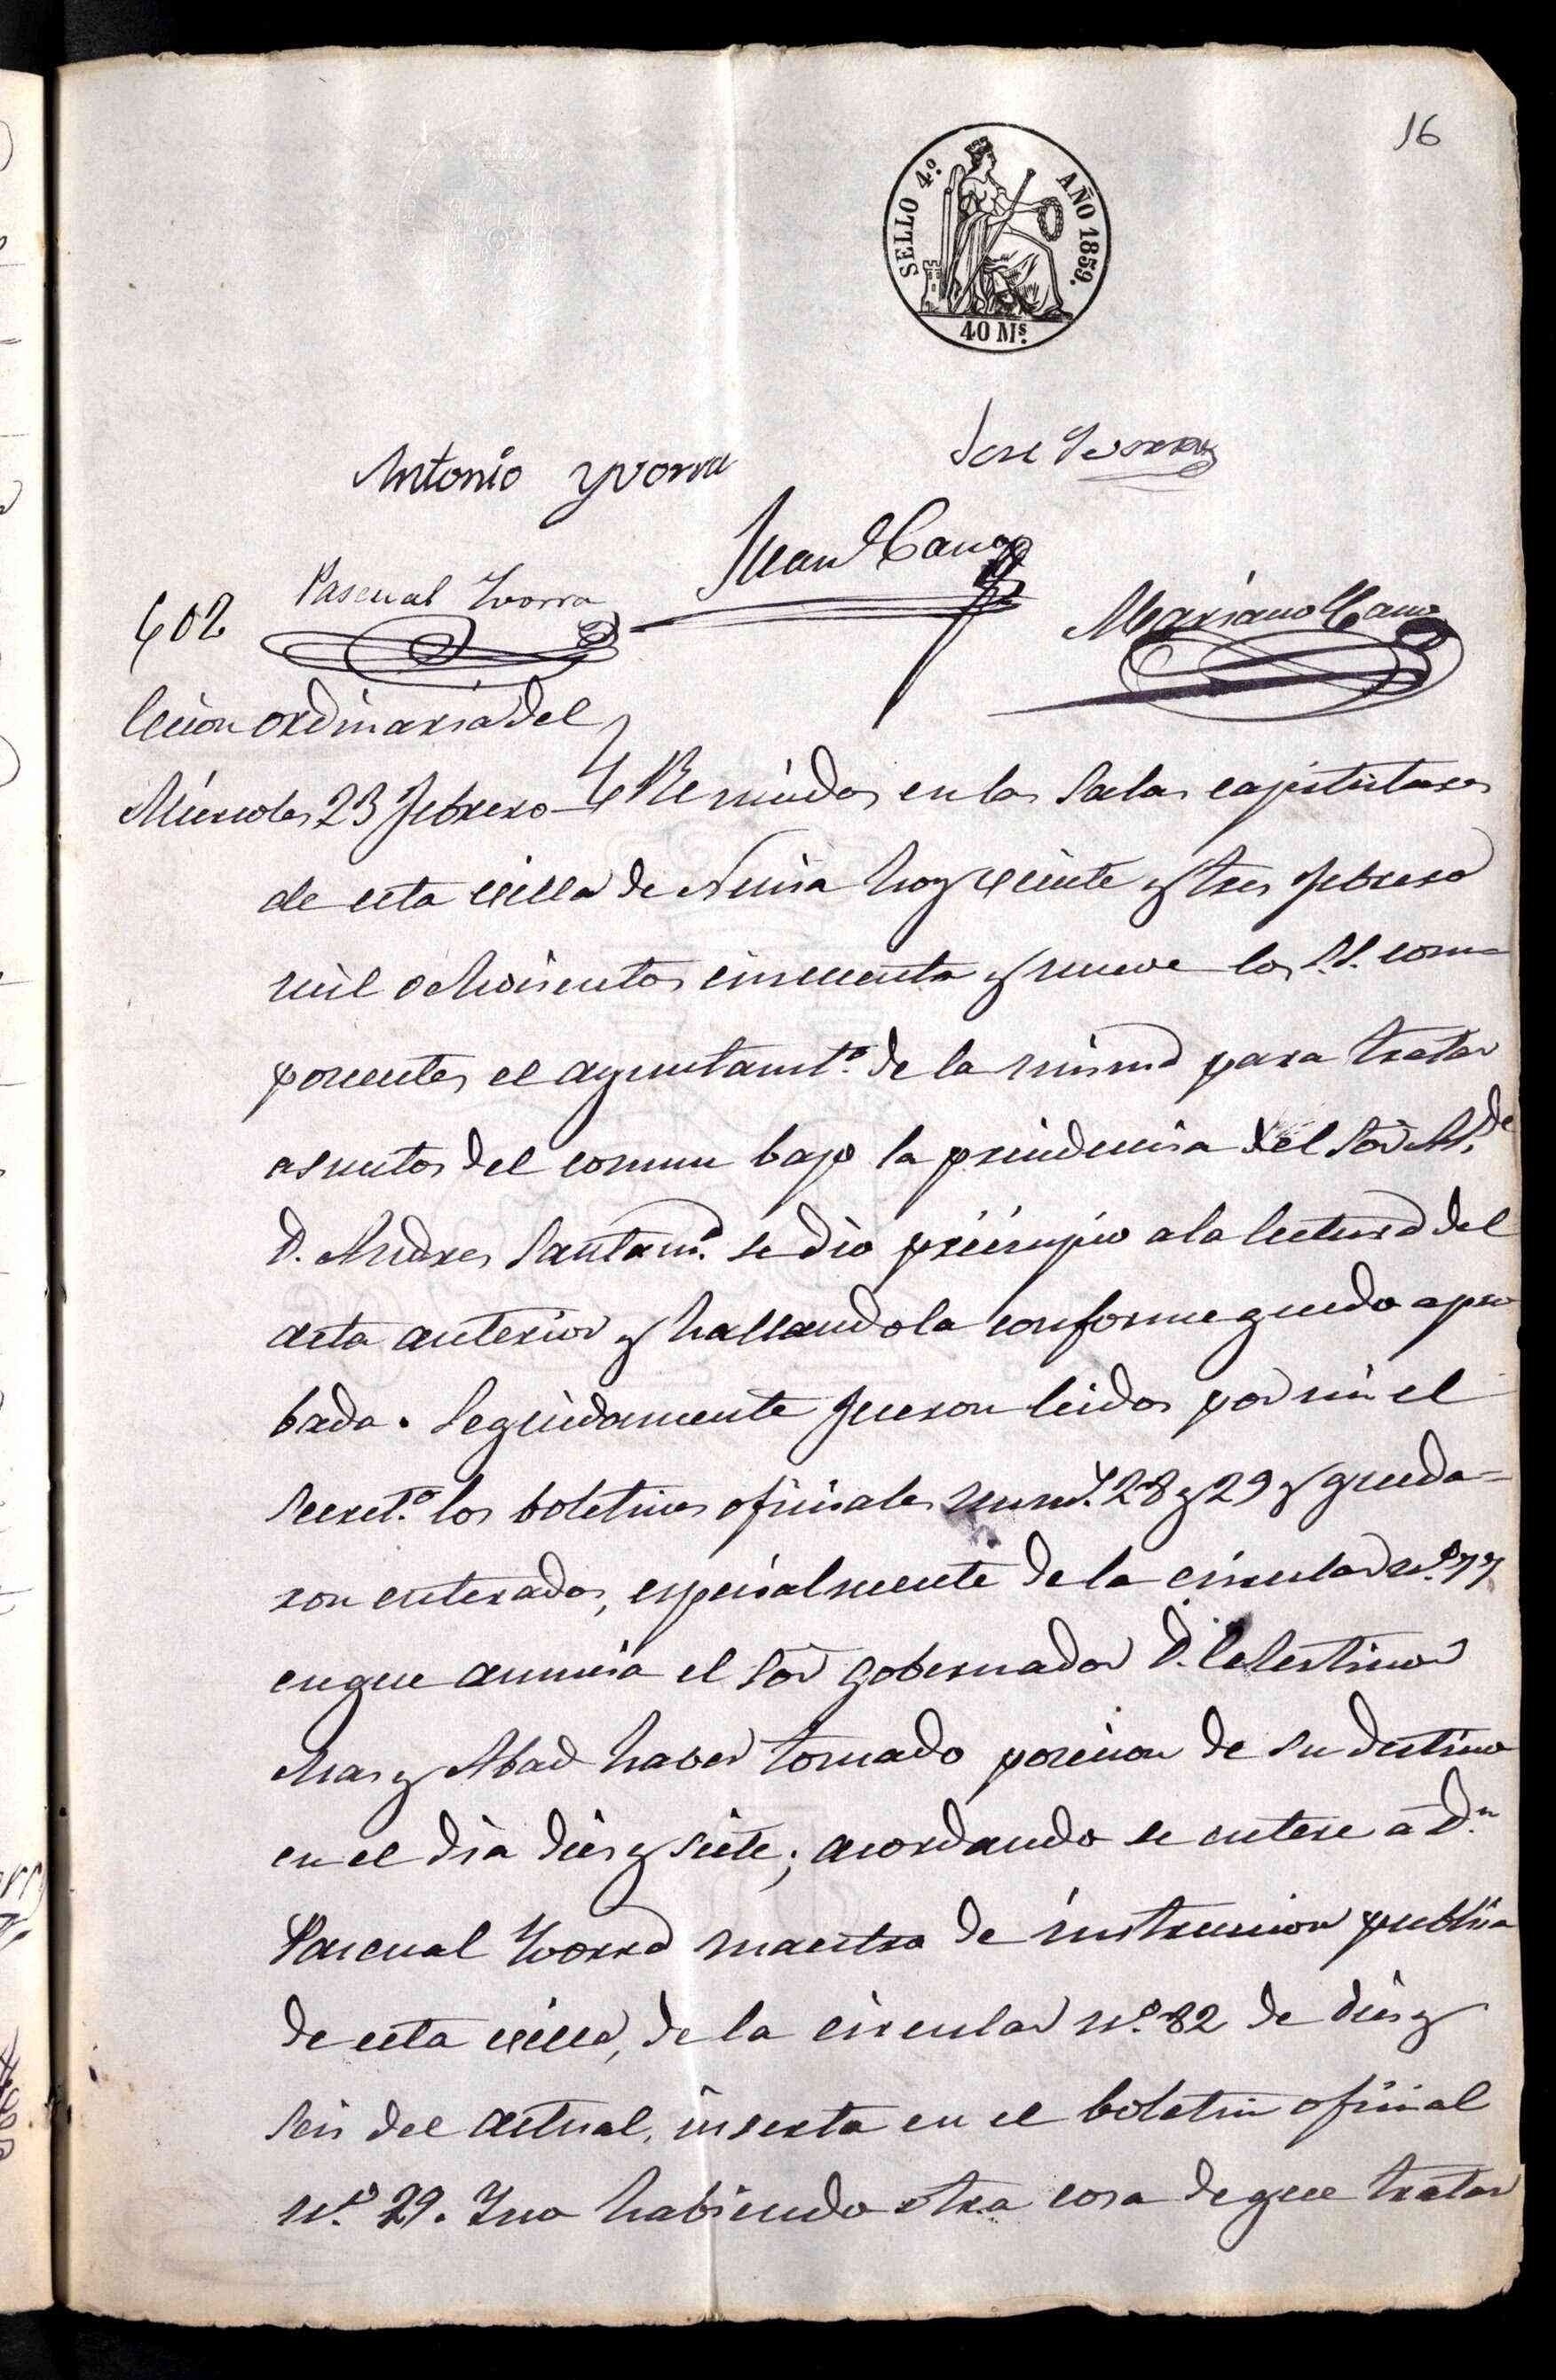 16
SELLO 4.º AÑO 1859.
40 Ms.
Antonio Yvorra
José Ivorra
Juan Cano
Pascual Ivorra
Mariano Cano
602
Secion ordinaria del
Miercoles 23 febrero
Reunidos en las Salas capitulares
de esta villa de Nucia hoy veinte y tres febrero
mil ochosientos cincuenta y nueve los S.S. com-
ponentes el ayuntamt.º de la misma para tratar
asuntos del comun bajo la precidencia del Sor Al.de
D. Andres Santam.a se dio principio a la lectura del
acta anterior y hallandola conforme quedo apro
bada. Seguidamente fueron leidos por mi el
Secret.º los boletines oficiales num.s 28 y 29 y queda-
ron enterados, especialmente de la circular n.º 77
en que anuncia el Sor Gobernador D. Celestino
Mas y Abad haber tomado pocecion de su destino
en el dia dies y siete; acordando se entere a D.n
Pascual Ivorra maestro de instruccion publica
de esta villa, de la circular n.º 82 de dies y
seis del actual, inserta en el boletin oficial
n.º 29. Y no habiendo otra cosa de que tratar